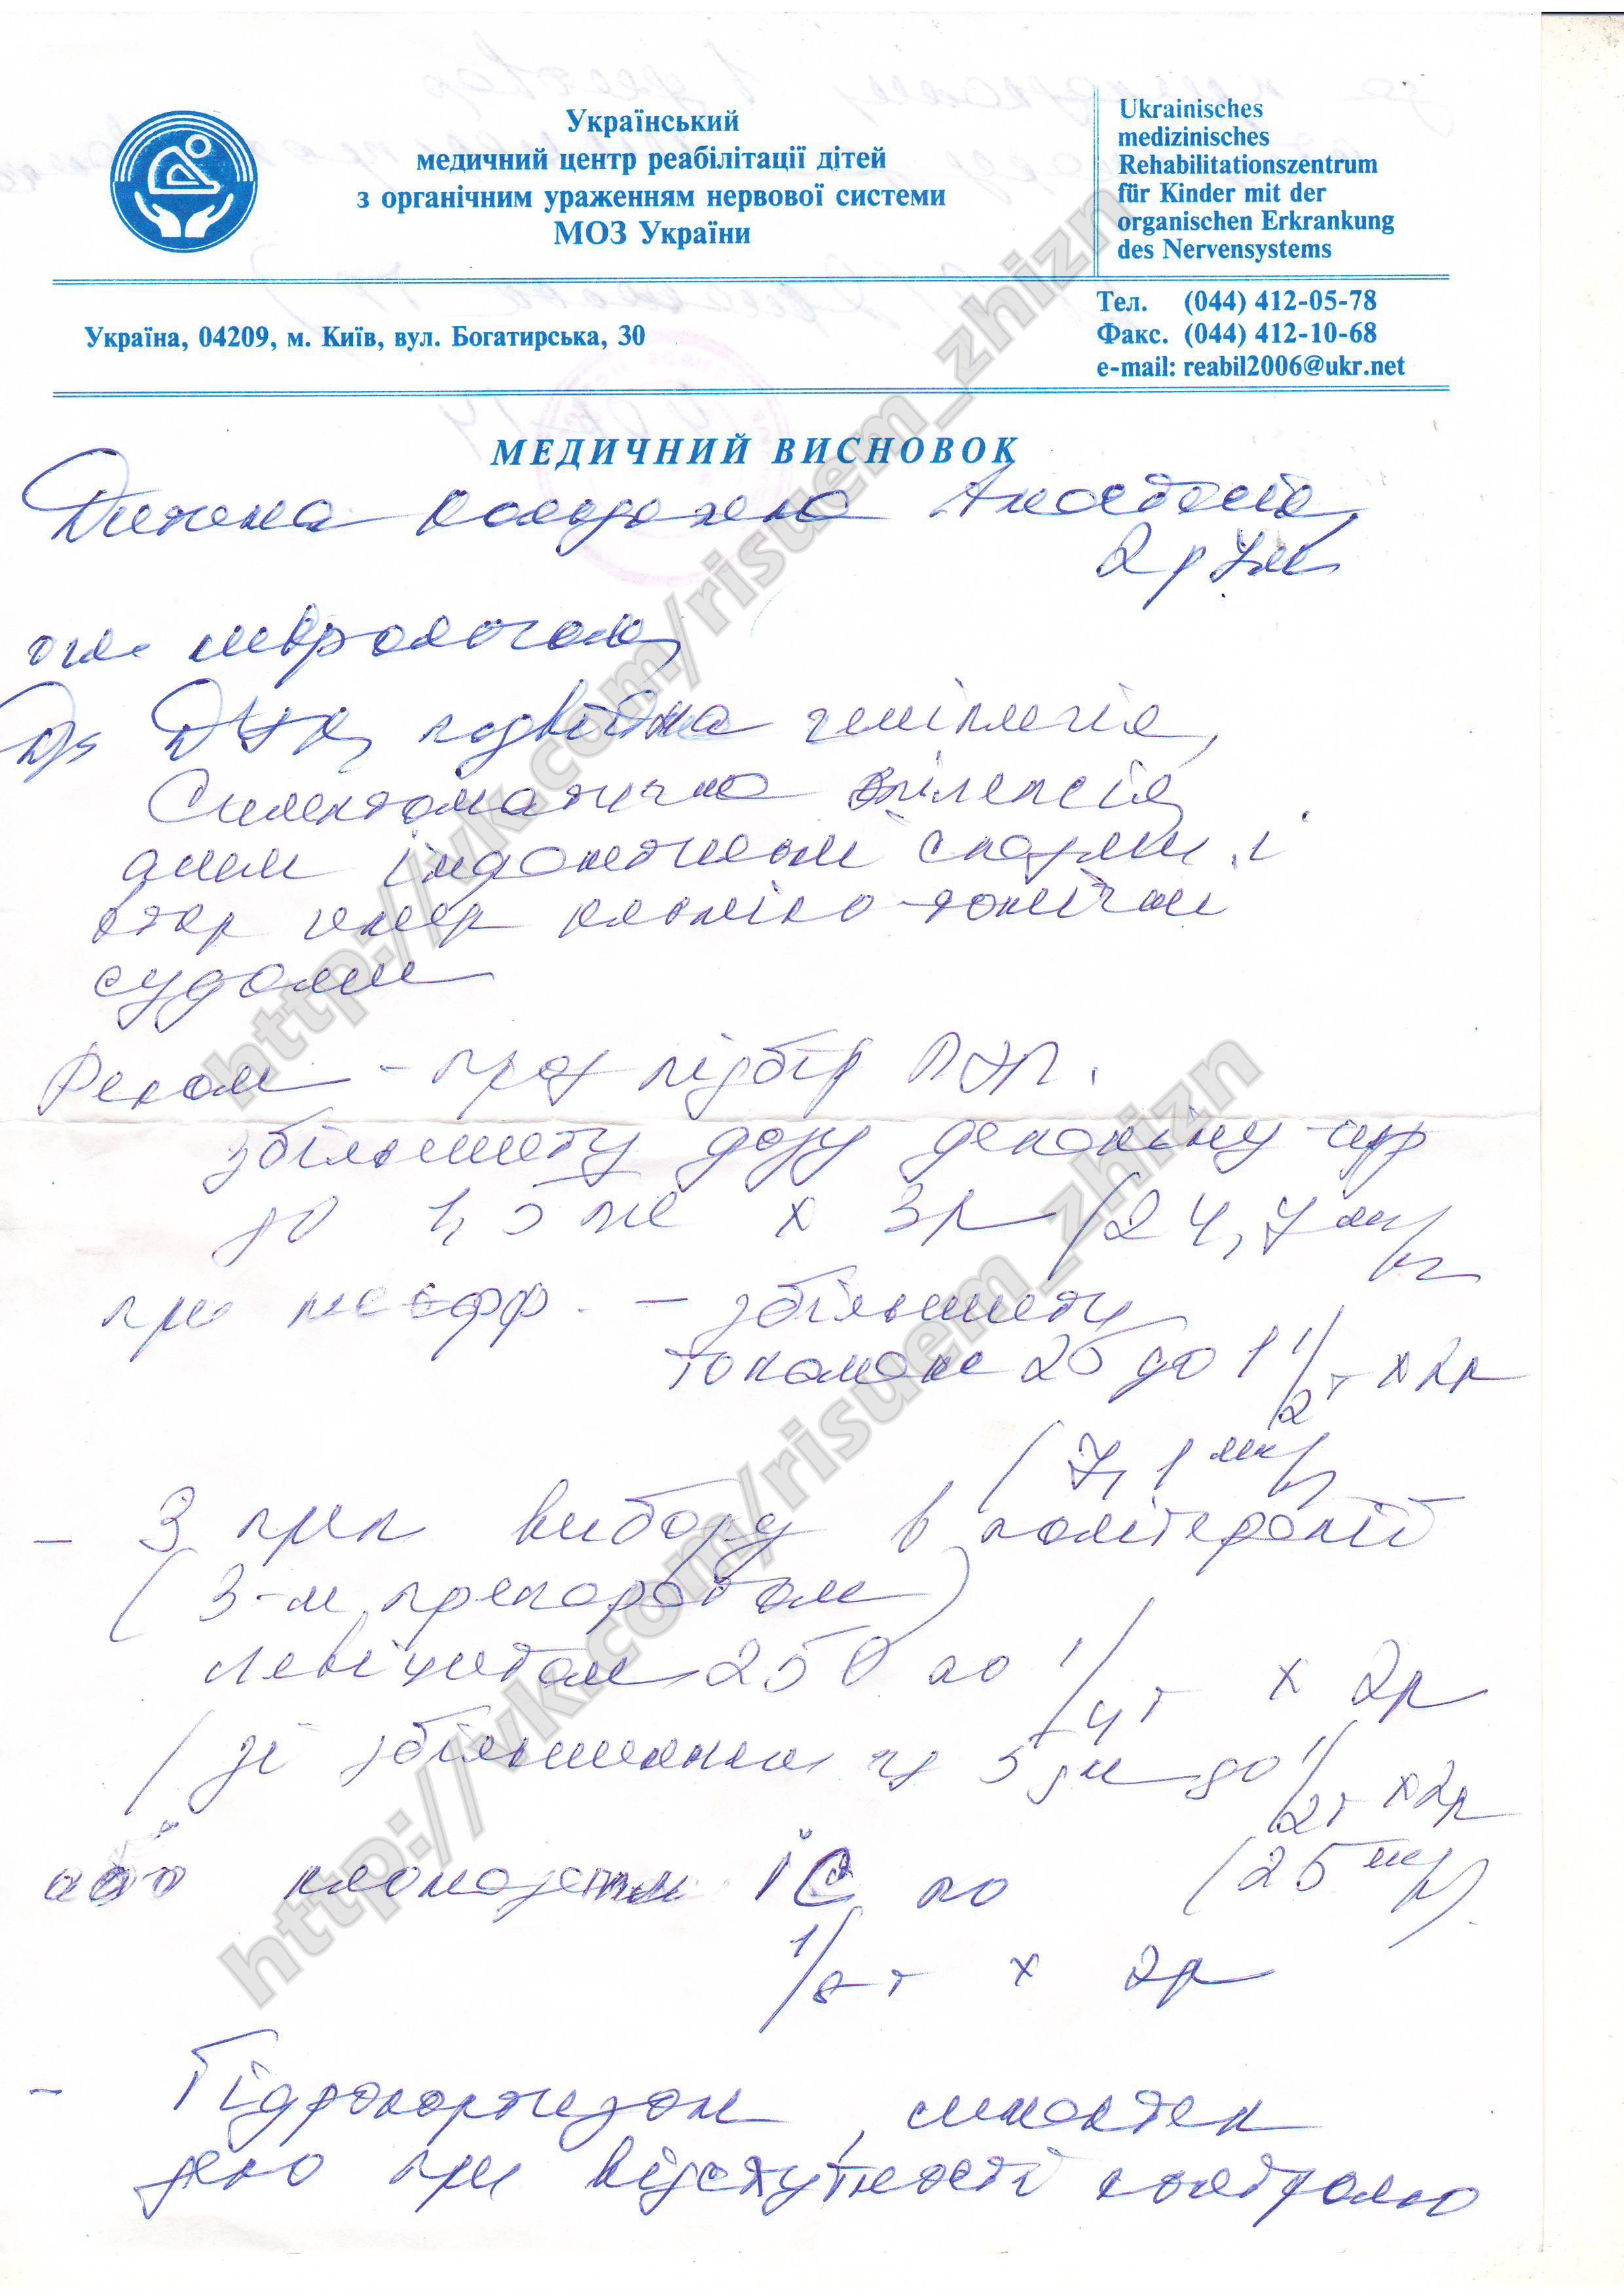 Український
медичний центр реабілітації дітей
з органічним ураженням нервової системи
МОЗ України
Ukrainisches
medizinisches
Rehabilitationszentrum
für Kinder mit der
organischen Erkrankung
des Nervensystems
Україна, 04209, м. Київ, вул. Богатирська, 30
Тел. (044) 412-05-78
Факс. (044) 412-10-68
e-mail: reabil2006@ukr.net
МЕДИЧНИЙ ВИСНОВОК
Дитина Анастасія
2 р 7 м
неврологом
ДЦП, подвійна геміплегія,
Симптоматична епілепсія,
спазми і
клоніко-тонічні
судоми
Реком - підбір ПЕП.
збільшити дозу депакіну
до 1,5 мл х 3р (24,7 мг/кг
при неефф. - збільшити
топамакс 25 до 1 1/2 т х 2р
(7,1 мг/
- 3 преп вибору в політерапії
(3-м препаратом)
левіцитам 250 по 1/4 т х 2р
(зі збільшенням 5 дн до 1/2 т х 2р
(25 мг/
або клоназепам по
1/8 т х 2р
- Гідрокортизон, синактен
депо при відсутності контролю
http://vk.com/risuem_zhizn
http://vk.com/risuem_zhizn